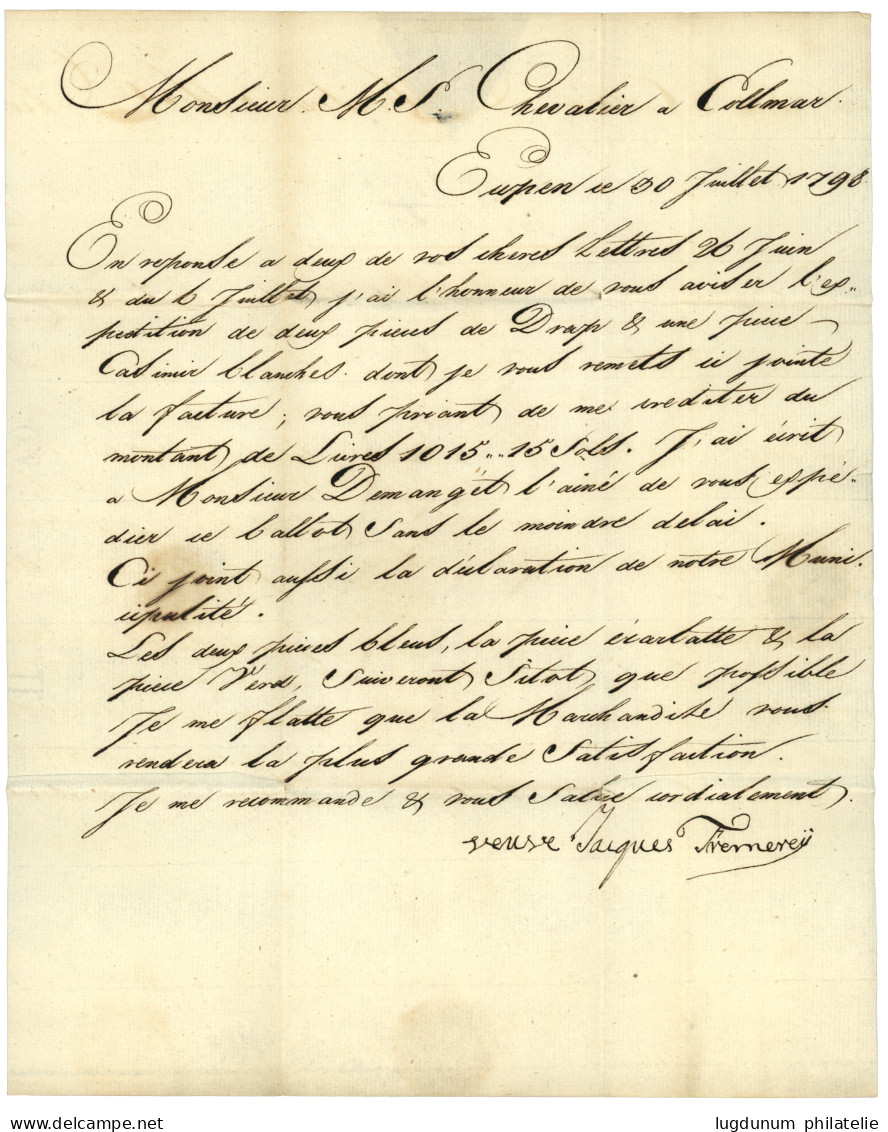 Monsieur. M. S. Chevalier a Collmar.
Eupen ce 30 Juillet 1798
En reponse a deux de vos cheres Lettres 26 Juin
& du 6 Juillet j'ai l'honneur de vous aviser l'ex„
pedition de deux pieces de Drap & une piece
Casimir blanches dont je vous remets ci jointe
la facture, vous priant de me crediter du
montant de Livres 1015„15 Sols. J'ai écrit
a Monsieur Demangét l'ainé de vous expé„
dier ce ballot Sans le moindre delai.
Ci joint aussi la déclaration de notre Muni.
cipalité.
Les deux pieces bleus, la piece écarlatte & la
piece Verd, Suiveront Sitot que possible
Je me flatte que la Marchandise vous
rendera la plus grande Satisfaction.
Je me recommande & vous Salue cordialement.
veuve Jacques Fremereÿ
delcampe.net
lugdunum philatelie